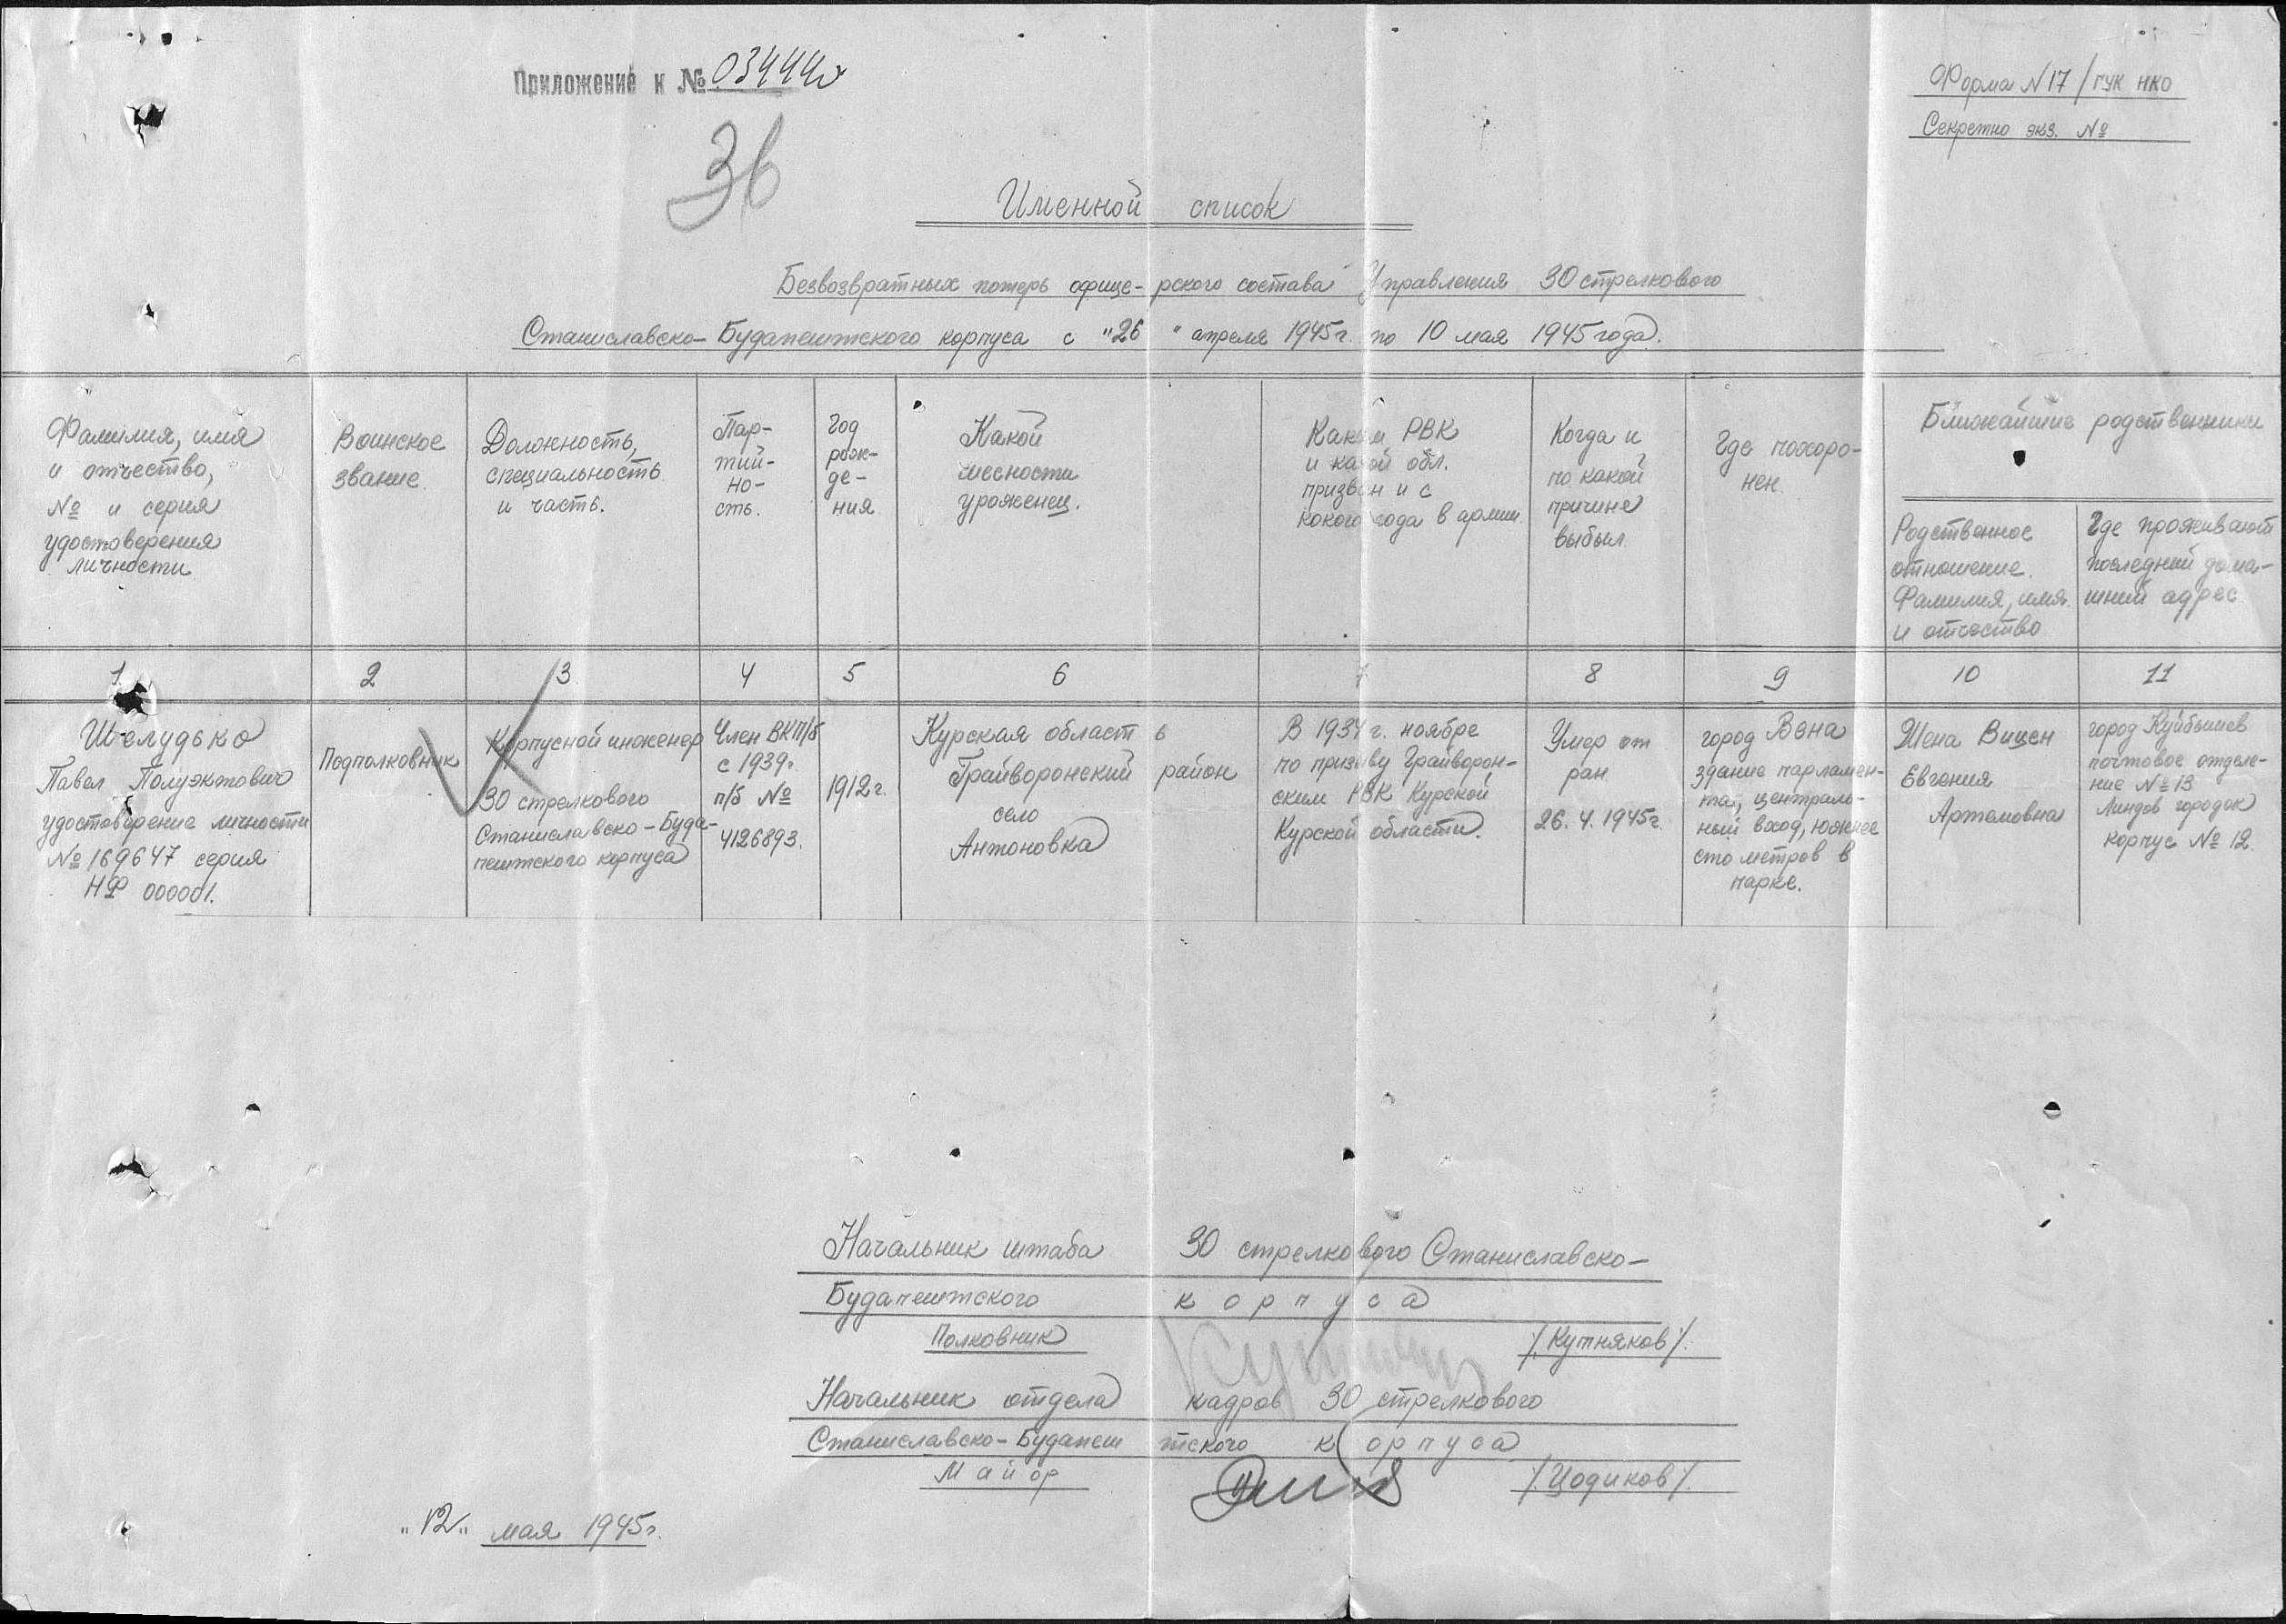 Приложение к № 03444с
Форма N 17/ГУК НКО
Секретно экз. №
36
Именной список
Безвозвратных потерь офицерского состава Управления 30 стрелкового
Станиславско-Будапештского корпуса с "26" апреля 1945г. по 10 мая 1945 года.
Фамилия, имя
и отчество,
№ и серия
удостоверения
личности
Воинское
звание
Должность,
специальность
и часть.
Пар-
тий-
но-
сть.
Год
рож-
де-
ния
Какой
месности
уроженец.
Каким РВК
и какой обл.
призван и с
кокого года в армии
Когда и
по какой
причине
выбыл
Где похоро-
нен
Ближайшие родственники
Родственное
отношение.
Фамилия, имя
и отчество
Где проживают
последний дома-
шний адрес
1 2 3 4 5 6 7 8 9 10 11
Шелудько
Павел Полуэктович
удостоверение личности
№ 169647 серия
НФ 000001.
Подполковник
Корпусной инженер
30 стрелкового
Станиславско-Буда-
пештского корпуса
Член ВКП/б
с 1939г.
п/б №
4126893.
1912г.
Курская область
Грайворонский район
село
Антоновка
В 1934 г. ноябре
по призыву Грайворон-
ским РВК Курской
Курской области.
Умер от
ран
26.4.1945г.
город Вена
здание парламен-
та, централь-
ный вход, южнее
сто метров в
парке.
Жена Вицен
Евгения
Артемовна
город Куйбышев
почтовое отделе-
ние № 13
Линдов городок
корпус № 12.
Начальник штаба 30 стрелкового Станиславско-
Будапештского корпуса
Полковник /Кутняков/.
Начальник отдела кадров 30 стрелкового
Станиславско-Будапештского корпуса
Майор /Цодиков/.
"12" мая 1945г.